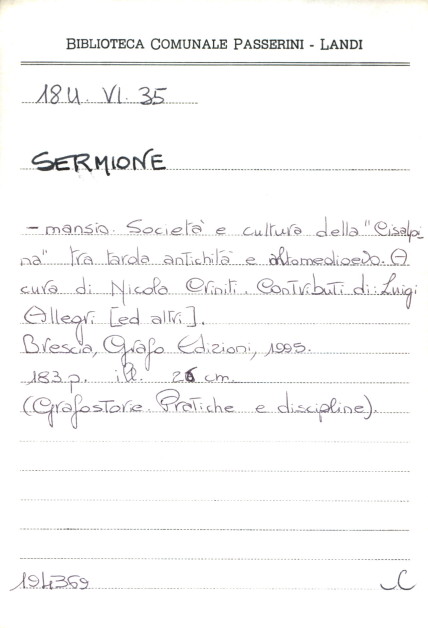 BIBLIOTECA COMUNALE PASSERINI - LANDI
18U. VI. 35
SERMIONE
- mansio. Società e cultura della "Cisalpi
na" tra tarda antichità e altomedioevo. A
cura di Nicola Criniti. Contributi di: Luigi
Allegri [ed altri].
Brescia, Grafo Edizioni, 1995.
183 p. ill. 26 cm.
(Grafostorie. Pratiche e discipline).
194369